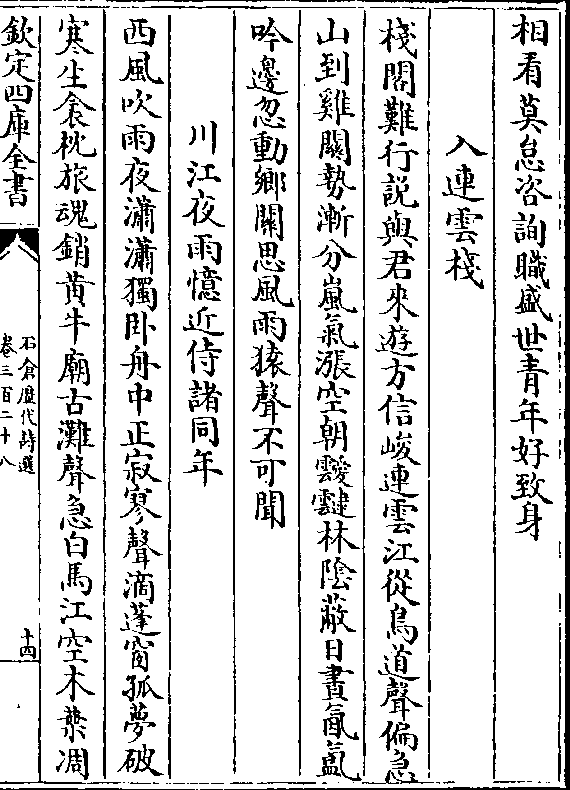 相看莫怠咨詢職盛世青年好致身
入連雲棧
棧閣難行説與君來遊方信峻連雲江從鳥道聲偏急
山到雞關勢漸分嵐氣漲空朝靉靆林陰蔽日晝氤氲
吟邊忽動鄉關思風雨猿聲不可聞
川江夜雨憶近侍諸同年
西風吹雨夜瀟瀟獨卧舟中正寂寥聲滴蓬窗孤夢破
寒生衾枕旅魂銷黄牛廟古灘聲急白馬江空木葉凋
欽定四庫全書
石倉歴代詩選
卷三百二十八
十四